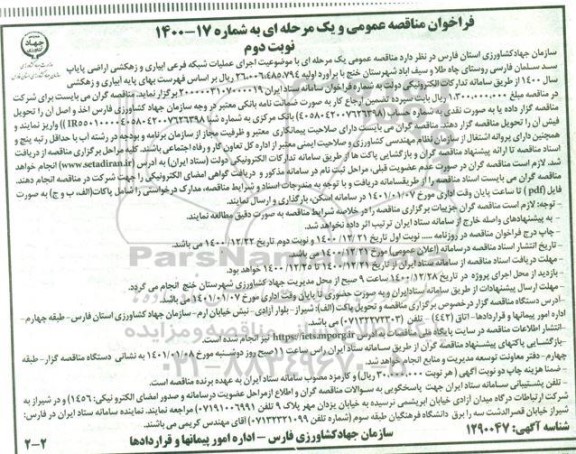 فراخوان مناقصه عمومی و یک مرحله ای به شماره ۱۷-۱۴۰۰
نوبت دوم
سازمان جهادکشاورزی استان فارس در نظر دارد مناقصه عمومی یک مرحله ای با موضوعیت اجرای عملیات شبکه فرعی آبیاری و زهکشی اراضی پایاب
سد سلمان فارسی روستای چاه طلا و سیف آباد شهرستان خنج با برآورد اولیه ۲۶،۰۰۰،۶۴۸۵،۷۹۴ ریال بر اساس فهرست بهای پایه آبیاری و زهکشی
سال ۱۴۰۰ از طریق سامانه تدارکات الکترونیکی دولت به شماره فراخوان سامانه ستاد ایران ۲۰۰۰۰۰۳۱۰۷۰۰۰۰۱۹ برگزار نماید. مناقصه گران می بایست برای شرکت
در مناقصه مبلغ ۱،۳۰۰،۰۰۰،۰۰۰ ریال بابت سپرده تضمین ارجاع کار به صورت ضمانت نامه بانکی معتبر در وجه سازمان جهاد کشاورزی فارس اخذ و اصل آن را تحویل
مناقصه گزار داده یا به صورت نقدی به شماره حساب
فیش آن را تحویل مناقصه گزار دهند. مناقصه گران می بایست دارای صلاحیت پیمانکاری معتبر و ظرفیت مجاز از سازمان برنامه و بودجه در رشته آب با حداقل رتبه پنج و
همچنین دارای پروانه اشتغال از سازمان نظام مهندسی کشاورزی و صلاحیت ایمنی معتبر از اداره کل تعاون کار و رفاه اجتماعی باشند. کلیه مراحل برگزاری مناقصه از دریافت
اسناد مناقصه تا ارائه پیشنهاد مناقصه گران و بازگشایی پاکت ها از طریق سامانه تدارکات الکترونیکی دولت (ستاد ایران) به آدرس (www.setadiran.ir) انجام خواهد
شد. لازم است مناقصه گران در صورت عدم عضویت قبلی، مراحل ثبت نام در سامانه مذکور و دریافت گواهی امضای الکترونیکی را جهت شرکت در مناقصه انجام دهند.
مناقصه گران می بایست اسناد مناقصه را از طریق سامانه دریافت و با توجه به مندرجات اسناد و شرایط مناقصه، مدارک درخواستی را شامل پاکات (الف، ب و ج) به صورت
فایل (pdf) تا ساعت پایان وقت اداری مورخ ۱۴۰۱/۰۱/۰۷ در سامانه اسکن، بارگذاری و ارسال نمایند.
- توجه: لازم است مناقصه گران جزییات برگزاری مناقصه را در خلاصه شرایط مناقصه به صورت دقیق مطالعه نمایند.
- به پیشنهادهای واصله خارج از سامانه ستاد ایران ترتیب اثر داده نخواهد شد.
- چاپ درج فراخوان مناقصه در روزنامه .... نوبت اول تاریخ ۱۴۰۰/۱۲/۲۱ و نوبت دوم تاریخ ۱۴۰۰/۱۲/۲۲ می باشد.
- تاریخ انتشار اسناد مناقصه درسامانه (اعلان عمومی) مورخ ۱۴۰۰/۱۲/۲۱ خواهد بود.
- مهلت دریافت اسناد مناقصه از سامانه ستاد ایران از تاریخ ۱۴۰۰/۱۲/۲۱ تا ۱۴۰۰/۱۲/۲۵ خواهد بود.
- بازدید از محل اجرای پروژه در تاریخ ۱۴۰۰/۱۲/۲۸ ساعت ۹ صبح از محل مدیریت جهاد کشاورزی شهرستان خنج انجام می گردد.
- مهلت ارسال پیشنهادات از طریق سامانه ستادایران و به صورت حضوری تا پایان وقت اداری مورخ ۱۴۰۱/۰۱/۰۷ می باشد.
-آدرس دستگاه مناقصه گزار در خصوص برگزاری مناقصه و تحویل پاکت (الف): شیراز- بلوار آزادی- نبش خیابان ارم- سازمان جهاد کشاورزی استان فارس- طبقه چهارم-
اداره امور پیمانها و قراردادها- اتاق (۴۴۲) تلفن (۰۷۱۳۲۲۷۲۳۰۳) می باشد.
-انتشار اطلاعات مناقصه در سایت پایگاه ملی مناقصات به آدرس https://iets.mporg.ir نیز انجام شده است.
-بازگشایی پاکتهای پیشنهاد مناقصه گران از طریق سامانه ستاد ایران راس ساعت ۱۱صبح روز دوشنبه مورخ ۱۴۰۱/۰۱/۰۸ به نشانی دستگاه مناقصه گزار- طبقه
چهارم- دفتر معاونت توسعه مدیریت و منابع انجام خواهد شد.
- ضمنا هزینه چاپ دو نوبت آگهی (هر نوبت ۳۰،۰۰۰،۰۰۰ ریال) و کارمزد مصوب سامانه ستاد ایران به عهده برنده مناقصه است.
- تلفن پشتیبانی سامانه ستاد ایران جهت پاسخگویی به سوالات مناقصه گران و اطلاع ازمراحل عضویت درسامانه و صدور امضای الکترونیکی: (۱۴۵۶) و در شیراز به
شرکت ارتباطات درگاه میدان آزادی خیابان ابریشمی نرسیده به خیابان یزدان مهر پلاک ۹ تلفن (۰۷۱۹۱۰۰۶۹۹۱) مراجعه نمایند. نماینده سامانه ستاد ایران در فارس:
شیراز خیابان قصرالدشت سه را برق دانشگاه فرهنگیان طبقه سوم (شماره تلفن ۰۷۱۳۲۳۲۱۰۹۹) آقای مهندس کریمی می باشند.
شناسه آگهی: ۱۲۹۰۰۴۷
سازمان جهادکشاورزی فارس - اداره امور پیمانها و قراردادها
۲-۲
ParsNamadData
۰۲۱-۸۸۳۴۹۶۷۰-۵